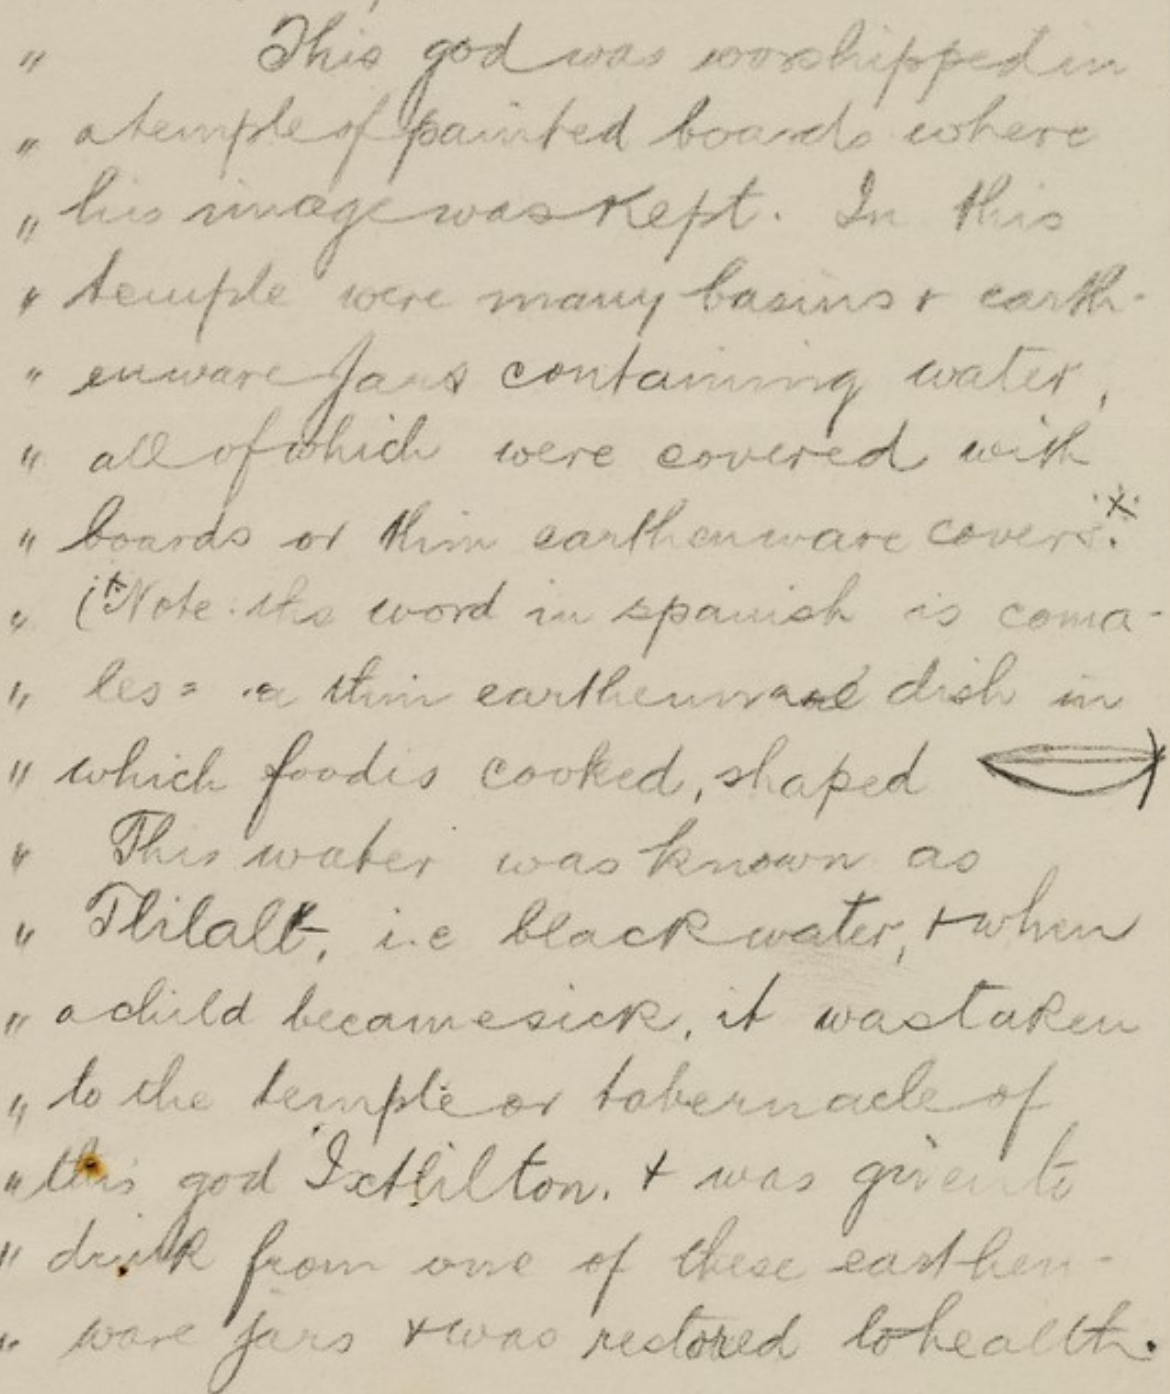 " This god was worshipped in
" a temple of painted boards where
" his image was kept. In this
" temple were many basins + earth-
" enware jars containing water,
" all of which were covered with
" boards or thin earthenware covers.x
" (x Note: the word in spanish is coma-
" les = a thin earthenware dish in
" which food is cooked, shaped )
" This water was known as
" Tlilalt, i.e black water, + when
" a child became sick, it was taken
" to the temple or tabernacle of
" this god Ixtlilton. + was given to
" drink from one of these earthen-
" ware jars + was restored to health.